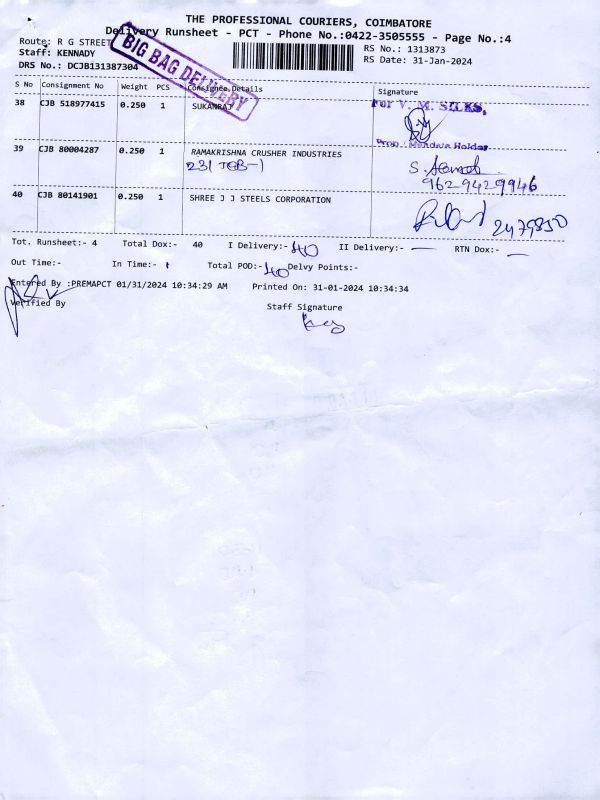 THE PROFESSIONAL COURIERS, COIMBATORE
Delivery Runsheet - PCT - Phone No.:0422-3505555 - Page No.:4
Route: R G STREET
Staff: KENNADY
DRS No.: DCJB131387304
BIG BAG DELIVERY
RS No.: 1313873
RS Date: 31-Jan-2024
S No Consignment No Weight PCS Consignee Details Signature
38 CJB 518977415 0.250 1 SUKANRAJ
For V. M. SILKS,
39 CJB 80004287 0.250 1 RAMAKRISHNA CRUSHER INDUSTRIES
231
9629429946
40 CJB 80141901 0.250 1 SHREE J J STEELS CORPORATION
2479850
Tot. Runsheet:- 4 Total Dox:- 40 I Delivery:- 40 II Delivery:- — RTN Dox:- —
Out Time:- In Time:- Total POD:- 40 Delvy Points:-
Entered By :PREMAPCT 01/31/2024 10:34:29 AM Printed On: 31-01-2024 10:34:34
Verified By
Staff Signature